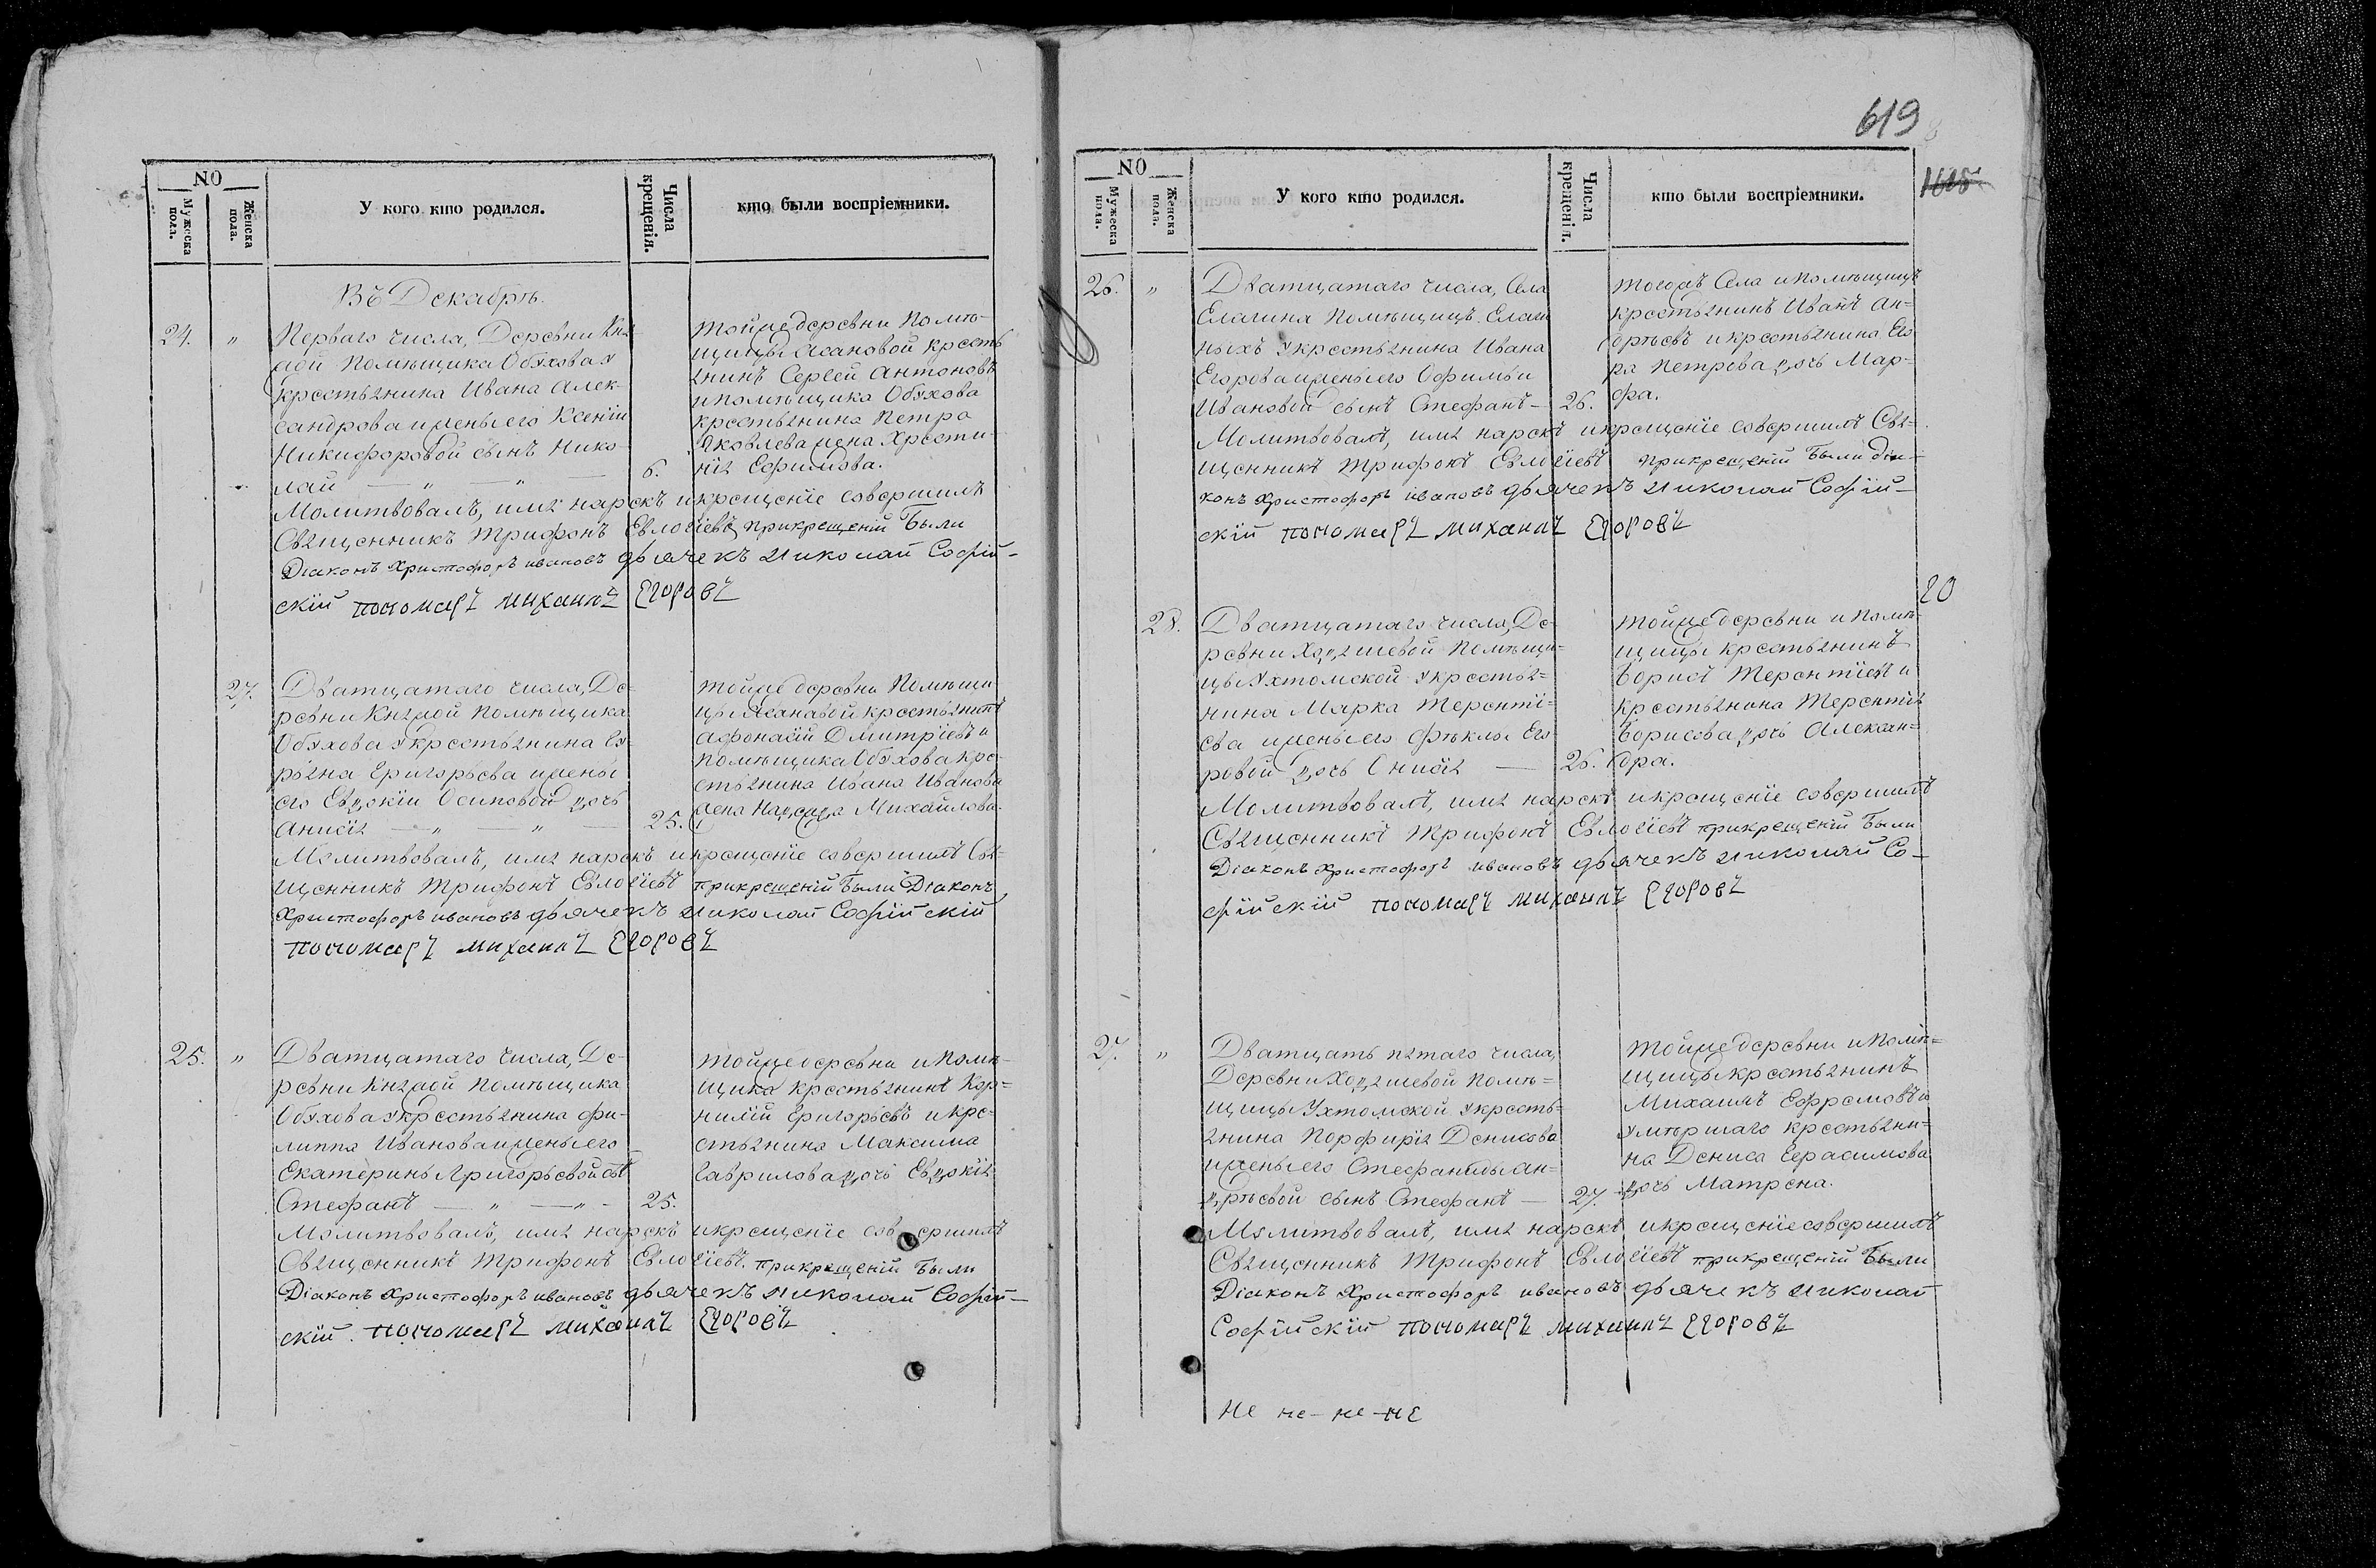 NO
Мужеска пола.
Женска пола.
У кого кто родился.
Числа крещенія.
кто были воспріемники.
Въ Декабрѣ.
24. "
Перваго числа, Деревни Кня-
жой Помѣщика Обухова у
крестьянина Ивана Алек-
сандрова и жены его Ксеніи
Никифоровой сынъ Нико-
лай — " — " — 6.
тойже деревни Помѣ-
щицы Асановой кресть
янинъ Сергей Антоновъ
и помѣщика Обухова
крестьянина Петра
Яковлева жена Христи-
нія Ефимова.
Молитвовалъ, имя нарекъ и крещеніе совершилъ
Священникъ Трифонъ Евлогіевъ прикрещеніи Были
Діаконъ Христофоръ ивановъ дьячекъ Николай Софій-
скій пономарь михаилъ Егоровъ
27.
Дватцатаго числа, Де-
ревни Княжой помѣщика
Обухова у крестьянина Гу-
рьяна Григорьева и жены
его Евдокіи Осиповой дочь
Анисія — " — " — 25.
тойже деревни Помѣщи
цы Асановой крестьянинъ
Афонасій Дмитріевъ и
помѣщика Обухова кре-
стьянина Ивана Иванова
жена Надежда Михайлова.
Молитвовалъ, имя нарекъ и крещеніе совершилъ Свя-
щенникъ Трифонъ Евлогіевъ прикрещеніи Были Діаконъ
Христофоръ ивановъ дьячекъ Николай Софійскій
пономарь михаилъ Егоровъ
25. "
Дватцатаго числа, Де-
ревни Княжой помѣщика
Обухова у крестьянина Фи-
липпа Иванова и жены его
Екатерины Григорьевой сынъ
Стефанъ — " — " - 25.
тойже деревни и помѣ-
щика крестьянинъ Кор-
нилій Григорьевъ и кре-
стьянина Максима
Гаврилова дочь Евдокія
Молитвовалъ, имя нарекъ и крещеніе совершилъ
Священникъ Трифонъ Евлогіевъ. прикрещеніи Были
Діаконъ Христофоръ ивановъ дьячекъ Николай Софій-
скій. пономарь михаилъ Егоровъ
619
1618
NO
Мужеска пола.
Женска пола.
У кого кто родился.
Числа крещенія.
кто были воспріемники.
26. "
Дватцатаго числа, Села
Елагина Помѣщицъ Елаги
ныхъ у крестьянина Ивана
Егорова и жены его Офимьи
Ивановой сынъ Стефанъ — 26.
тогожъ Села и помѣщицъ
крестьянинъ Иванъ Ан-
дрѣевъ и крестьянина Его
ра Петрова дочь Мар-
фа.
Молитвовалъ, имя нарекъ и крещеніе совершилъ Свя-
щенникъ Трифонъ Евлогіевъ прикрещеніи Были діа-
конъ Христофоръ ивановъ дьячекъ Николай Софій-
скій пономарь михаилъ Егоровъ
20
28.
Дватцатаго числа, Де-
ревни Ходяшевой Помѣщи-
цы Ухтомской у крестья-
нина Марка Терентіе-
ева и жены его Фѣклы Его
ровой дочь Онисія — 26.
тойже деревни и Помѣ-
щицы крестьянинъ
Борисъ Терентіевъ и
крестьянина Терентія
Борисова дочь Алексан-
дра.
Молитвовалъ, имя нарекъ и крещеніе совершилъ
Священникъ Трифонъ Евлогіевъ прикрещеніи Были
Діаконъ Христофоръ ивановъ дьячекъ Николай Со-
фійскій пономарь михаилъ Егоровъ
27. "
Дватцать пятаго числа,
Деревни Ходяшевой помѣ-
щицы Ухтомской у кресть-
янина Порфирія Денисова
и жены его Стефаниды Ан-
дрѣевой сынъ Стефанъ — 27.
тойже деревни и помѣ-
щицы крестьянинъ
Михаилъ Ефремовъ и
умѣршаго крестьяни-
на Дениса Герасимова
дочь Матрена.
Молитвовалъ, имя нарекъ и крещеніе совершилъ
Священникъ Трифонъ Евлогіевъ прикрещеніи Были
Діаконъ Христофоръ ивановъ дьячекъ Николай
Софійскій пономарь михаилъ Егоровъ
не не-не-не